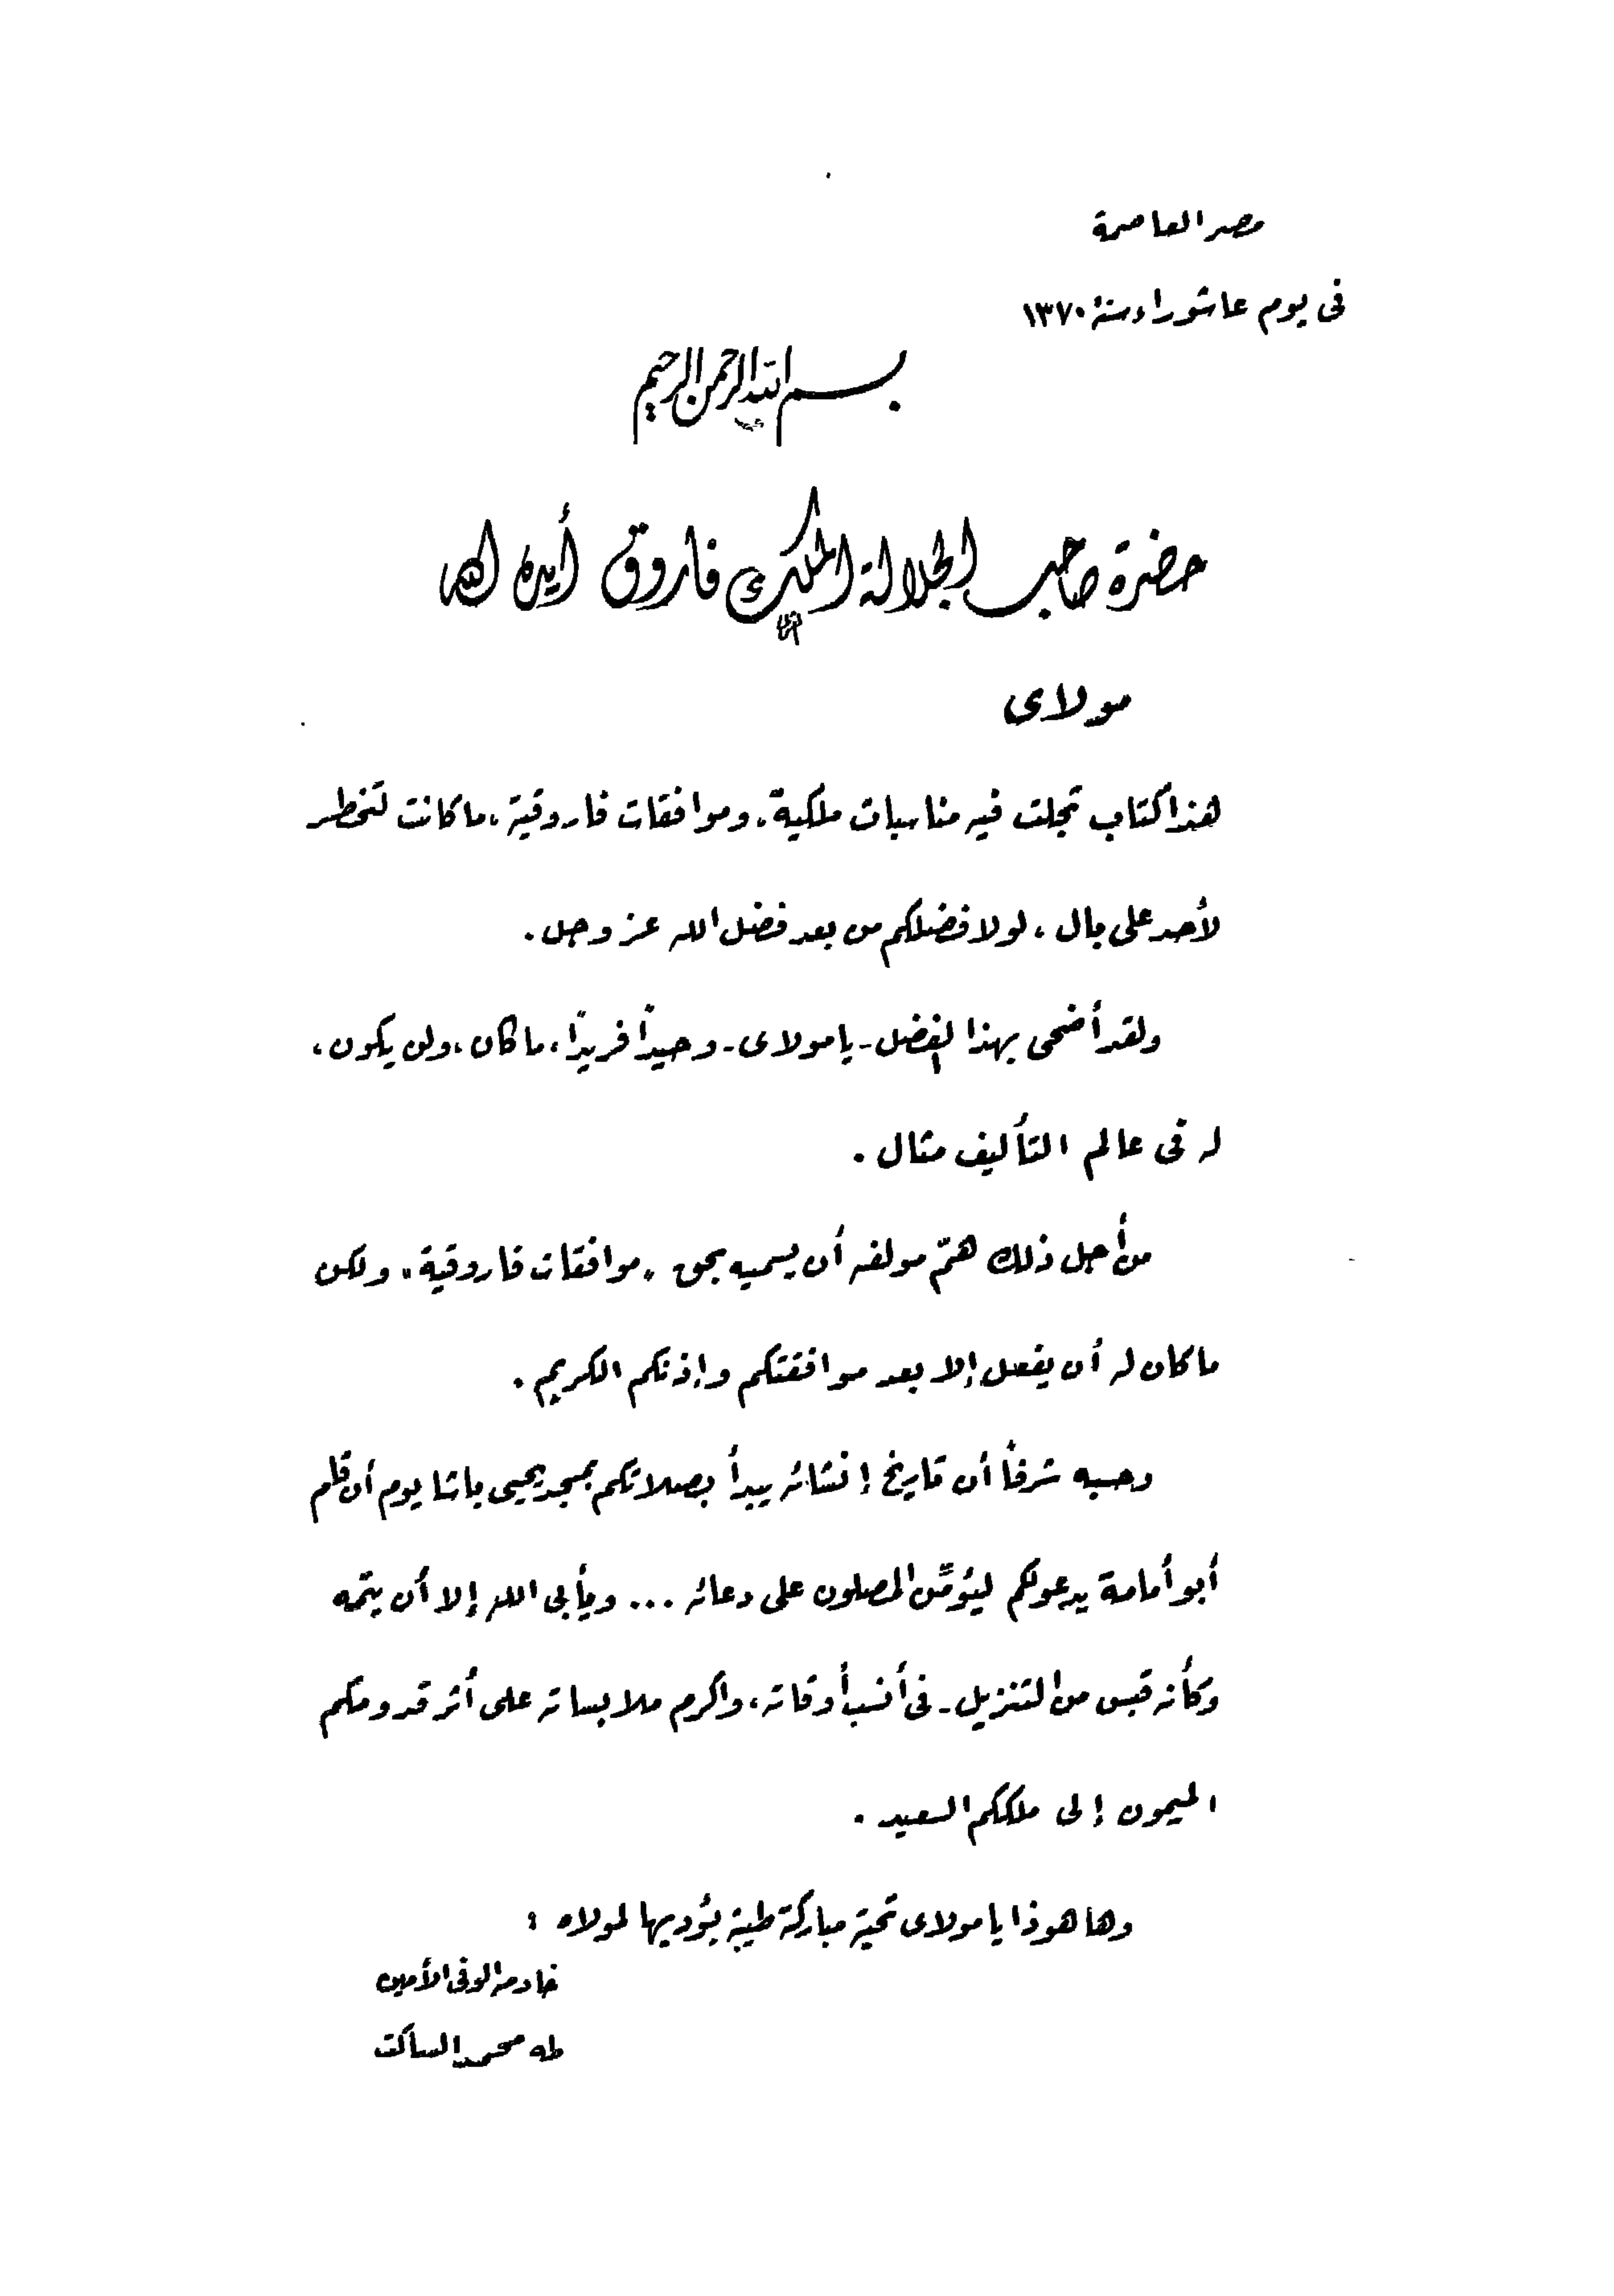 مصر العاصمة
فى يوم عاشوراء سنة ١٣٧٠
بسم الله الرحمن الرحيم
حضرة صاحب الجلالة الملك فاروق أيده الله
مولاى
هذا كتاب تجلت فيه مناسبات ملكية، وموافقات فاروقية، ما كانت لتخطر
لأحد على بال، لولا فضلكم من بعد فضل الله عز وجل.
ولقد أضحى بهذا الفضل - يا مولاى - وحيداً فريداً، ما كان، ولن يكون،
له فى عالم التأليف مثال.
من أجل ذلك همّ مولفه أن يسميه بحق "موافقات فاروقية" ولكن
ما كان له أن يفعل إلا بعد موافقتكم وإذنكم الكريم.
وحسبه شرفاً أن تاريخ إنشائه يبدأ بصلاتكم بمسجد يحيى باشا يوم أن قام
أبو أمامة يدعو لكم ليؤمِّن المصلون على دعائه ... ويأبى الله إلا أن يتمه
وكأنه قبس من التنزيل - فى أنسب أوقاته، وأكرم ملابساته على أثر قدومكم
الميمون إلى ملككم السعيد.
وها هو ذا يا مولاى تحية مباركة طيبة يؤديها لمولاه:
خادمه الوفى الأمين
طه محمد الساكت